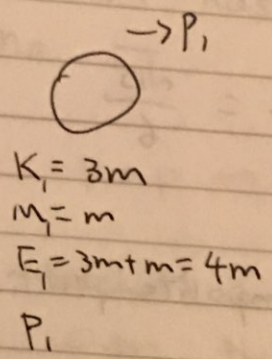 →P₁
K₁ = 3m
M₁ = m
E₁ = 3m+m = 4m
P₁